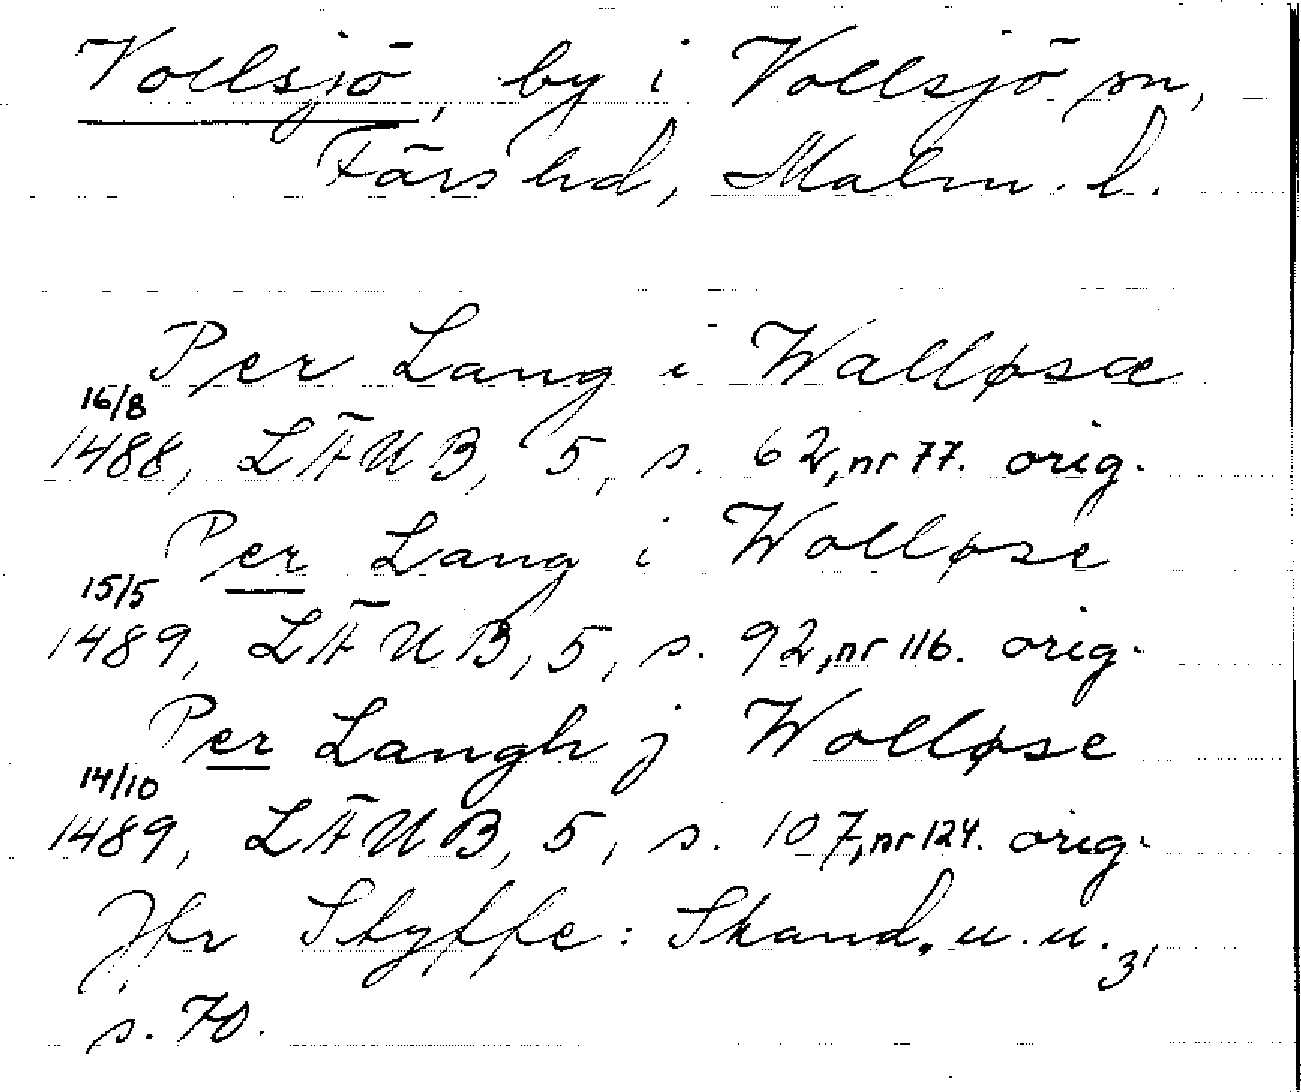 Vollsjö, by i Vollsjö sn,
Färs hd, Malm. l.
Per Lang i Walløsæ
16/8
1488, LÄUB, 5, s. 62, nr 77. orig.
Per Lang i Wolløse
15/5
1489, LÄUB, 5, s. 92, nr 116. orig.
Per Langh j Wolløse
14/10
1489, LÄUB, 5, s. 107, nr 124. orig.
Jfr Styffe: Skand. u. u. 3,
s. 70.